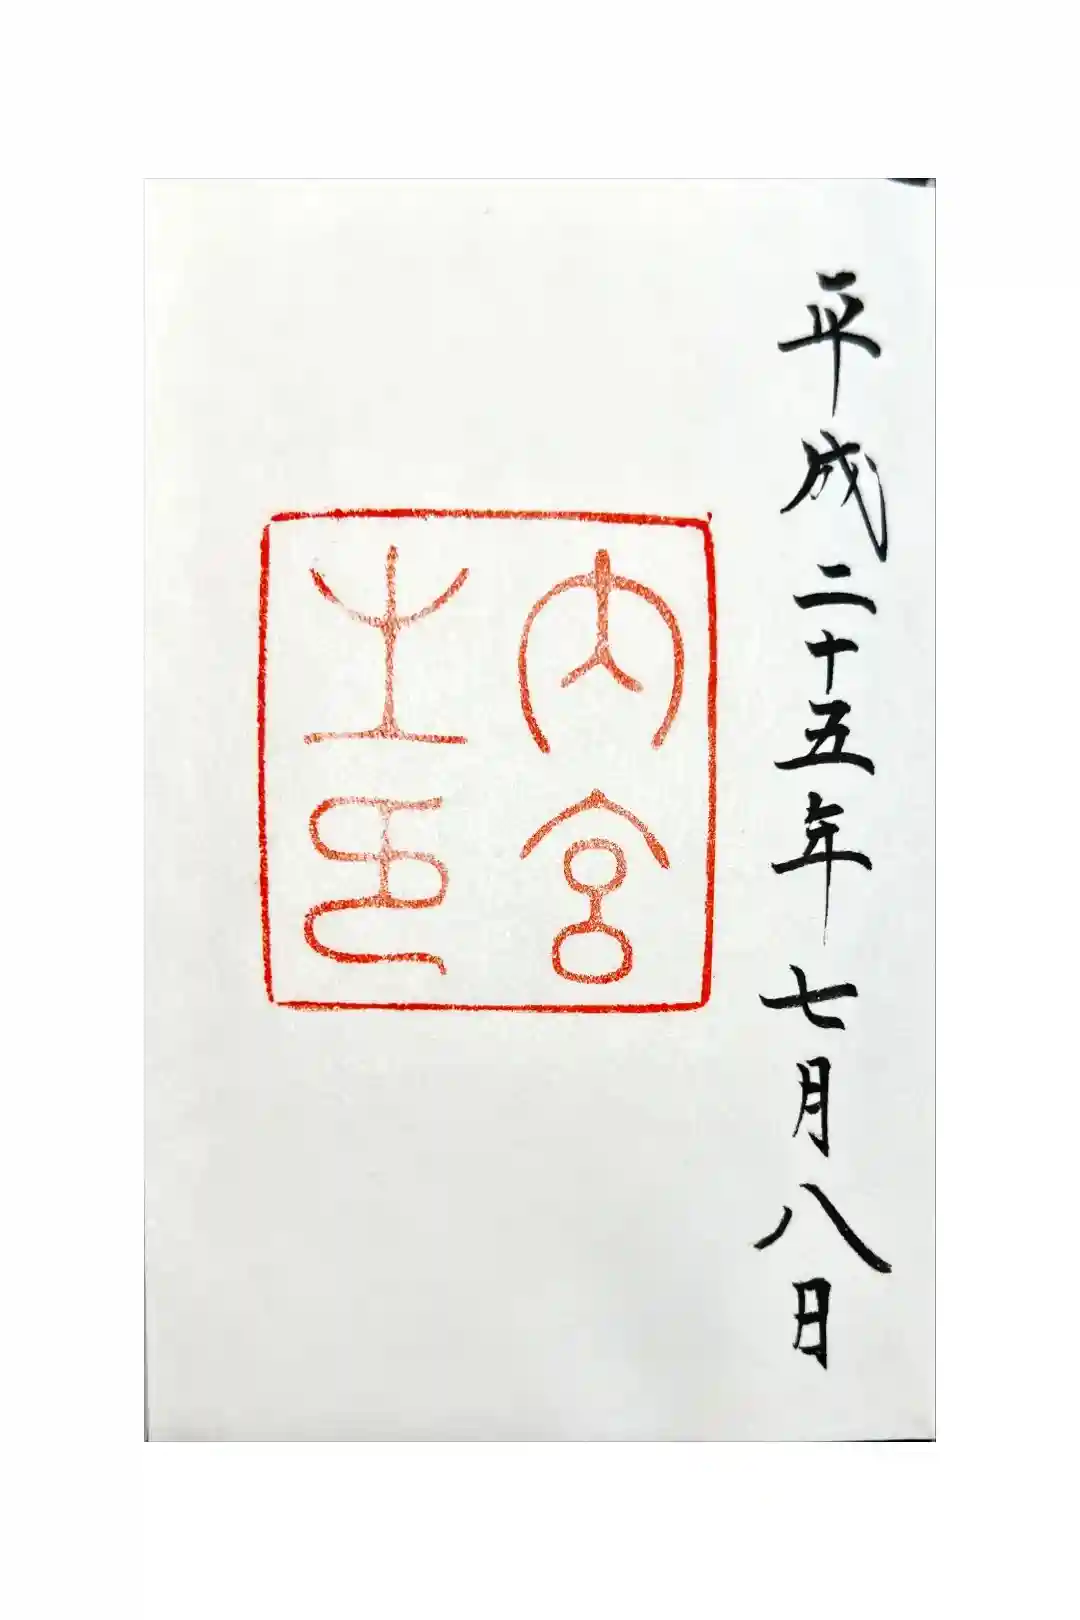 平成二十五年七月八日
内宮
之印